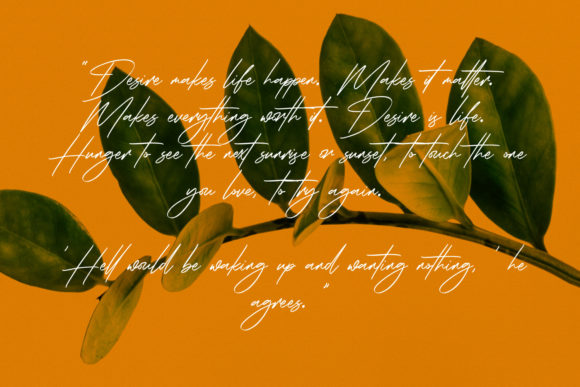 "Desire makes life happen. Makes it matter.
Makes everything worth it. Desire is life.
Hunger to see the next sunrise or sunset, to touch the one
you love, to try again.
'Hell would be waking up and wanting nothing, ' he
agrees. "